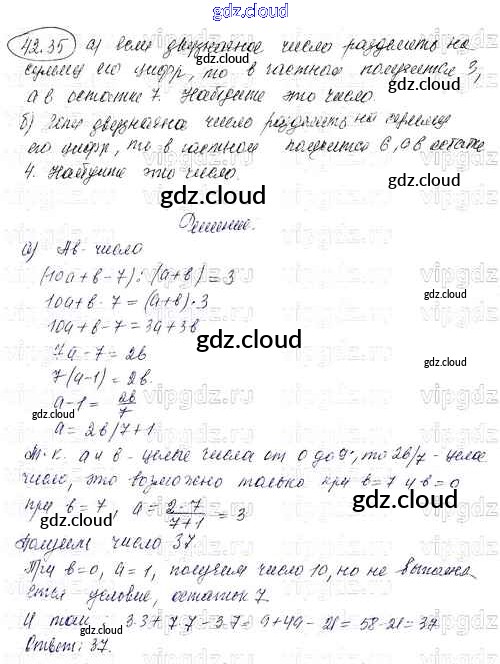 gdz.cloud
42.35 а) если двузначное число разделить на
сумму его цифр, то в частном получается 3,
а в остатке 7. Найдите это число.
б) Если двузначное число разделить на
его цифр, то в частном получится 6, а в остатке
4. Найдите это число.
gdz.cloud
Решение.
а) Ав - число
(10а + в - 7) : (а+в) = 3
10а + в - 7 = (а+в)·3
10а + в - 7 = 3а + 3в
7а - 7 = 2в
7(а-1) = 2в
а-1 = 2в/7
а = 2в/7+1
Т.к. а и в - целые числа от 0 до 9, то 2в/7 - целое
число, это возможно только при в=7 и в=0
при в=7, а = 2·7/7+1 = 3
Получим число 37.
При в=0, а=1, получим число 10, но не выполня
ется условие, остаток 7.
3·3 + 7·7 - 3·7 = 9+49 - 21 = 58-21 = 37
Ответ: 37.